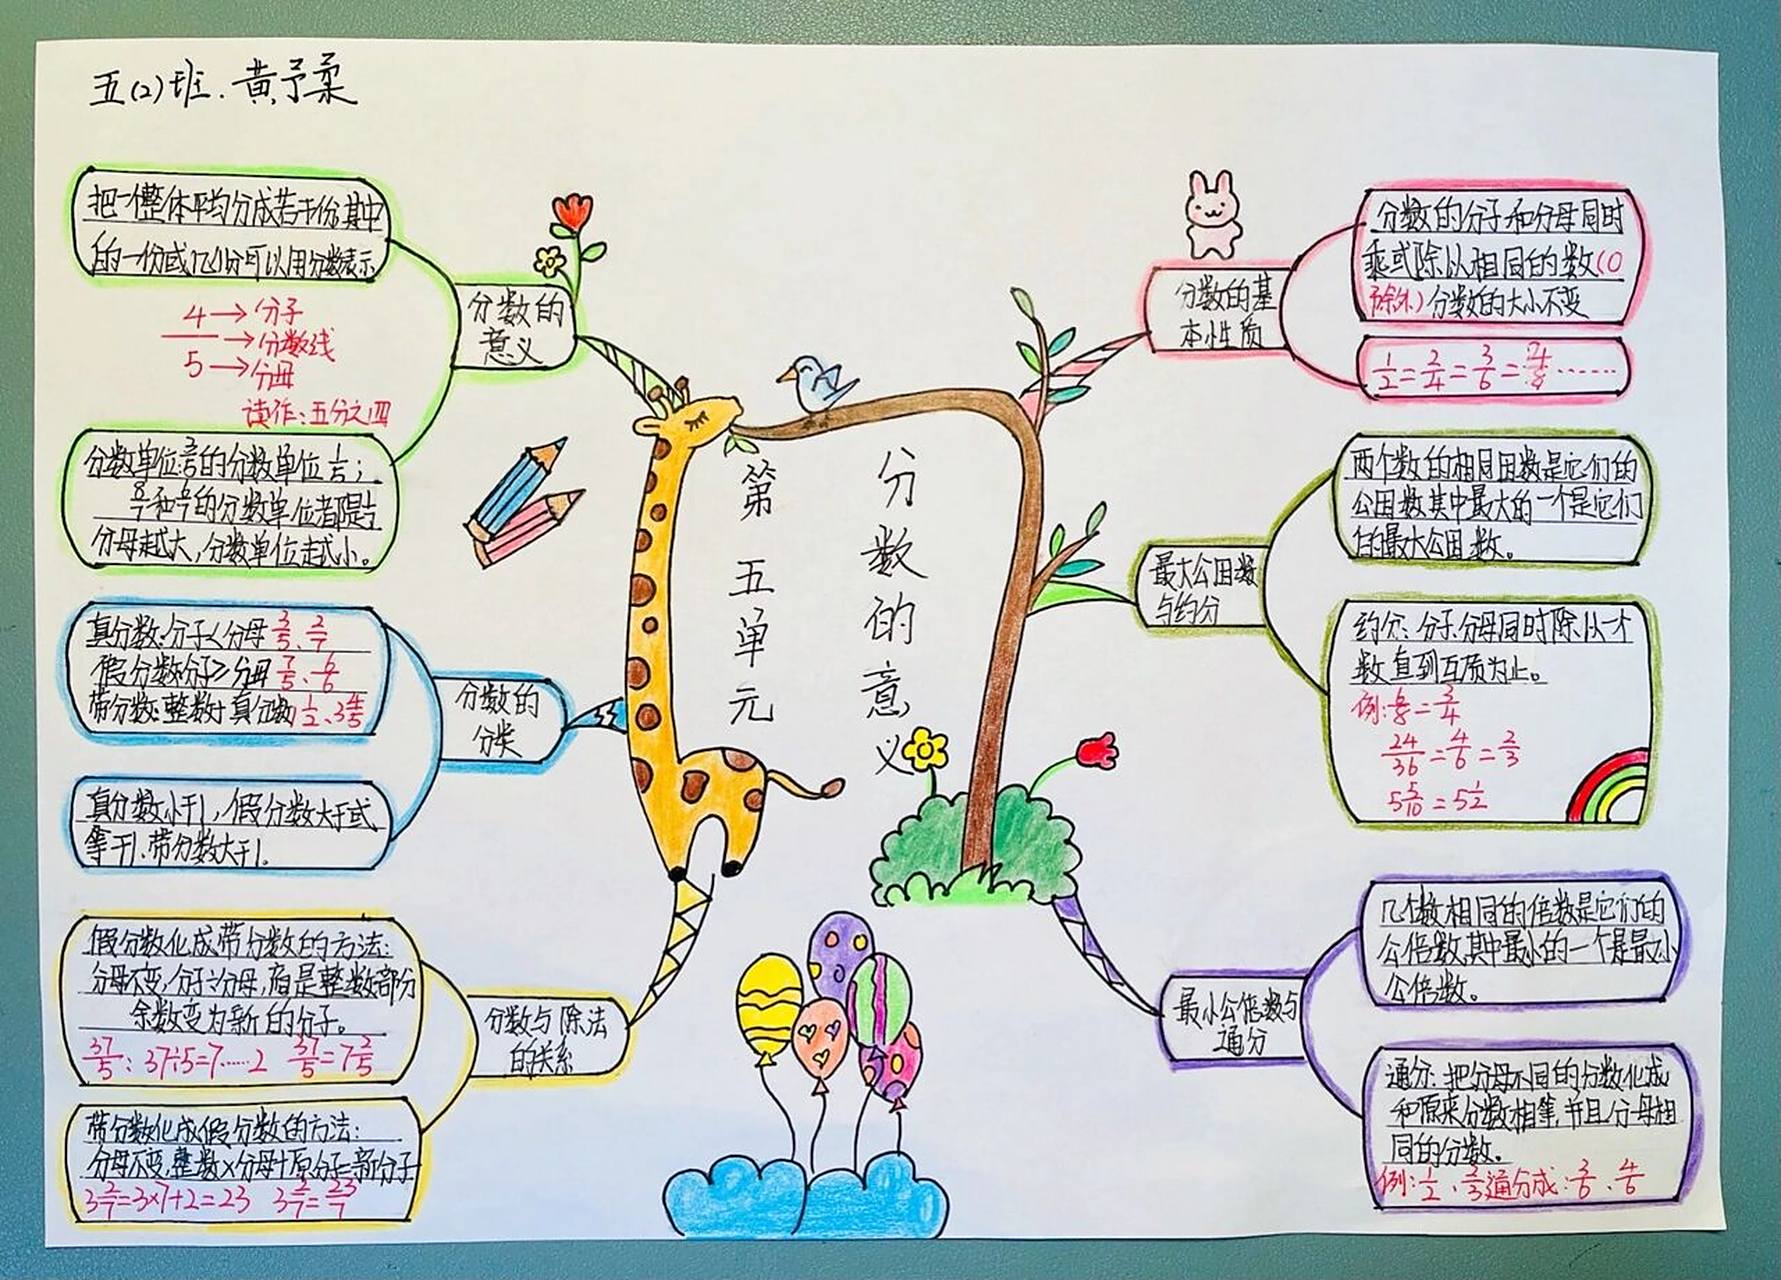 五(2)班.黄予柔
第五单元
分数的意义
分数的意义
把一个整体平均分成若干份,其中
的一份或几份可以用分数表示
4→分子
—→分数线
5→分母
读作:五分之四
分母越大,分数单位越小。
分数的分类
真分数:分子<分母 3/5、2/7
假分数:分子≥分母 7/5、6/6
真分数小于1,假分数大于或
等于1,带分数大于1。
分数与除法的关系
假分数化成带分数的方法:
分母不变,分子÷分母,商是整数部份
余数变为新的分子。
37/5:37÷5=7……2 37/5=7 2/5
带分数化成假分数的方法:
分母不变,整数×分母+原分子=新分子
3 2/7=3×7+2=23 3 2/7=23/7
分数的基本性质
分数的分子和分母同时
乘或除以相同的数(0
除外)分数的大小不变
1/2=2/4=3/6=4/8……
最大公因数与约分
两个数的相同因数是它们的
公因数,其中最大的一个是它们
的最大公因数。
约分:分子、分母同时除以一个
数直到互质为止。
例:6/8=3/4
24/36=4/6=2/3
5 5/10=5 1/2
最小公倍数与通分
几个数相同的倍数是它们的
公倍数,其中最小的一个是最小
公倍数。
通分:把分母不同的分数化成
和原来分数相等,并且分母相
同的分数。
例:1/2、2/3通分成:3/6、4/6